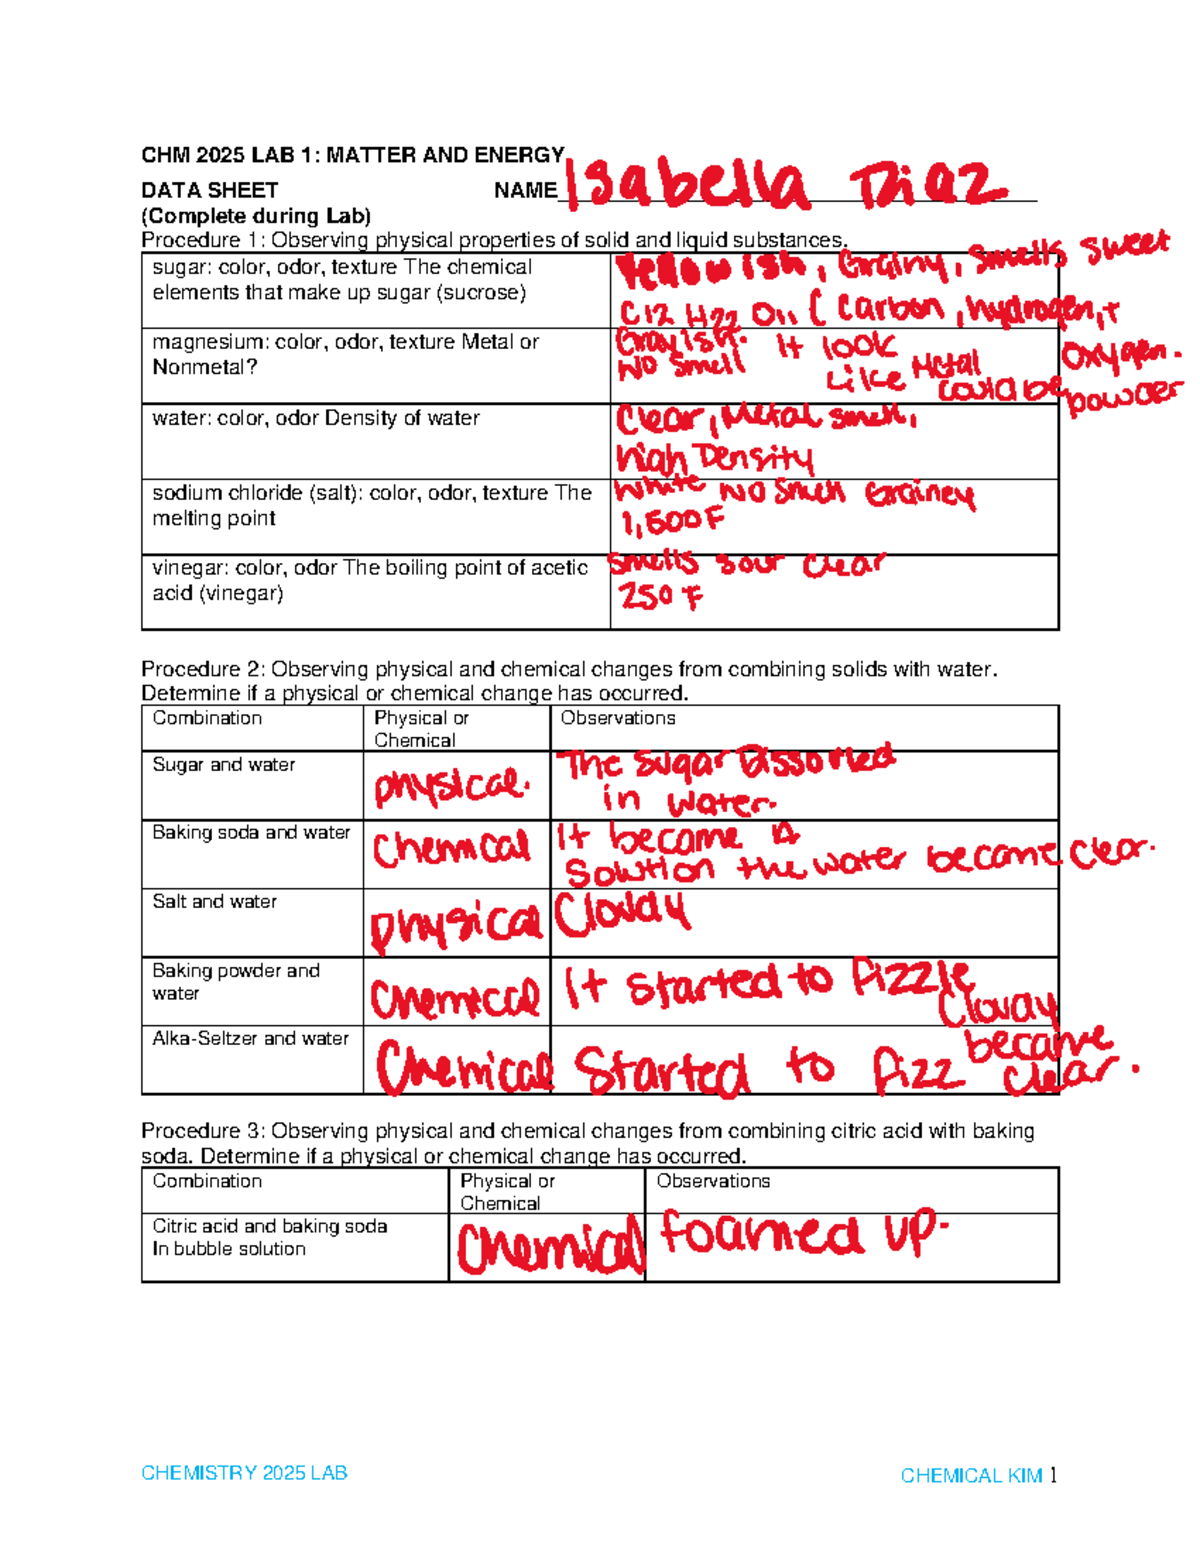 CHM 2025 LAB 1: MATTER AND ENERGY
DATA SHEET NAME Isabella Diaz
(Complete during Lab)
Procedure 1: Observing physical properties of solid and liquid substances.
sugar: color, odor, texture The chemical
elements that make up sugar (sucrose)
Yellowish, Grainy, smells sweet
C12 H22 O11 ( carbon, hydrogen, +
oxygen.
magnesium: color, odor, texture Metal or
Nonmetal?
Grayish. It look
No smell Like Metal
could be powder
water: color, odor Density of water
Clear, Metal smell,
high Density
sodium chloride (salt): color, odor, texture The
melting point
White No smell Grainey
1,500F
vinegar: color, odor The boiling point of acetic
acid (vinegar)
smells sour clear
250 F
Procedure 2: Observing physical and chemical changes from combining solids with water.
Determine if a physical or chemical change has occurred.
Combination
Physical or
Chemical
Observations
Sugar and water
physical.
The sugar Dissolved
in water.
Baking soda and water
Chemical
It became a
solution the water became clear.
Salt and water
physical
Cloudy
Baking powder and
water
Chemical
It started to fizzle
Cloudy
Alka-Seltzer and water
Chemical
Started to fizz became
clear.
Procedure 3: Observing physical and chemical changes from combining citric acid with baking
soda. Determine if a physical or chemical change has occurred.
Combination
Physical or
Chemical
Observations
Citric acid and baking soda
In bubble solution
Chemical
foamed up.
CHEMISTRY 2025 LAB
CHEMICAL KIM 1